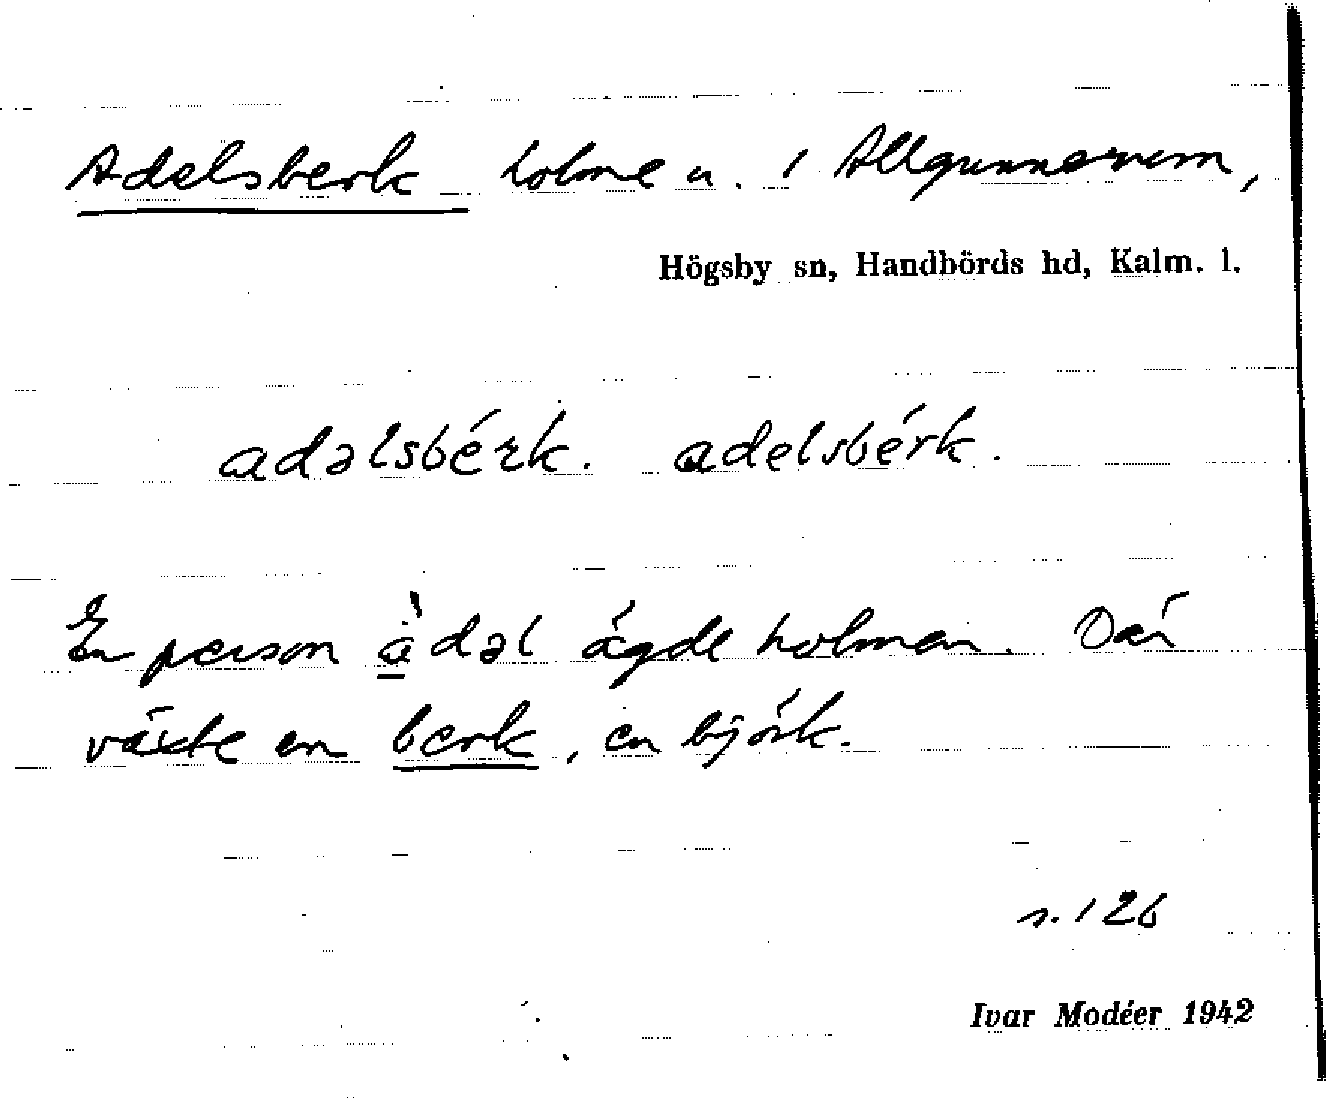 Adelsberk holme n. i Allgunnaren,
Högsby sn, Handbörds hd, Kalm. l.
adəlsbérk. adelsbérk.
En person àdəl ägde holmen. Där
växte en berk, en björk.
s. 126
Ivar Modéer 1942